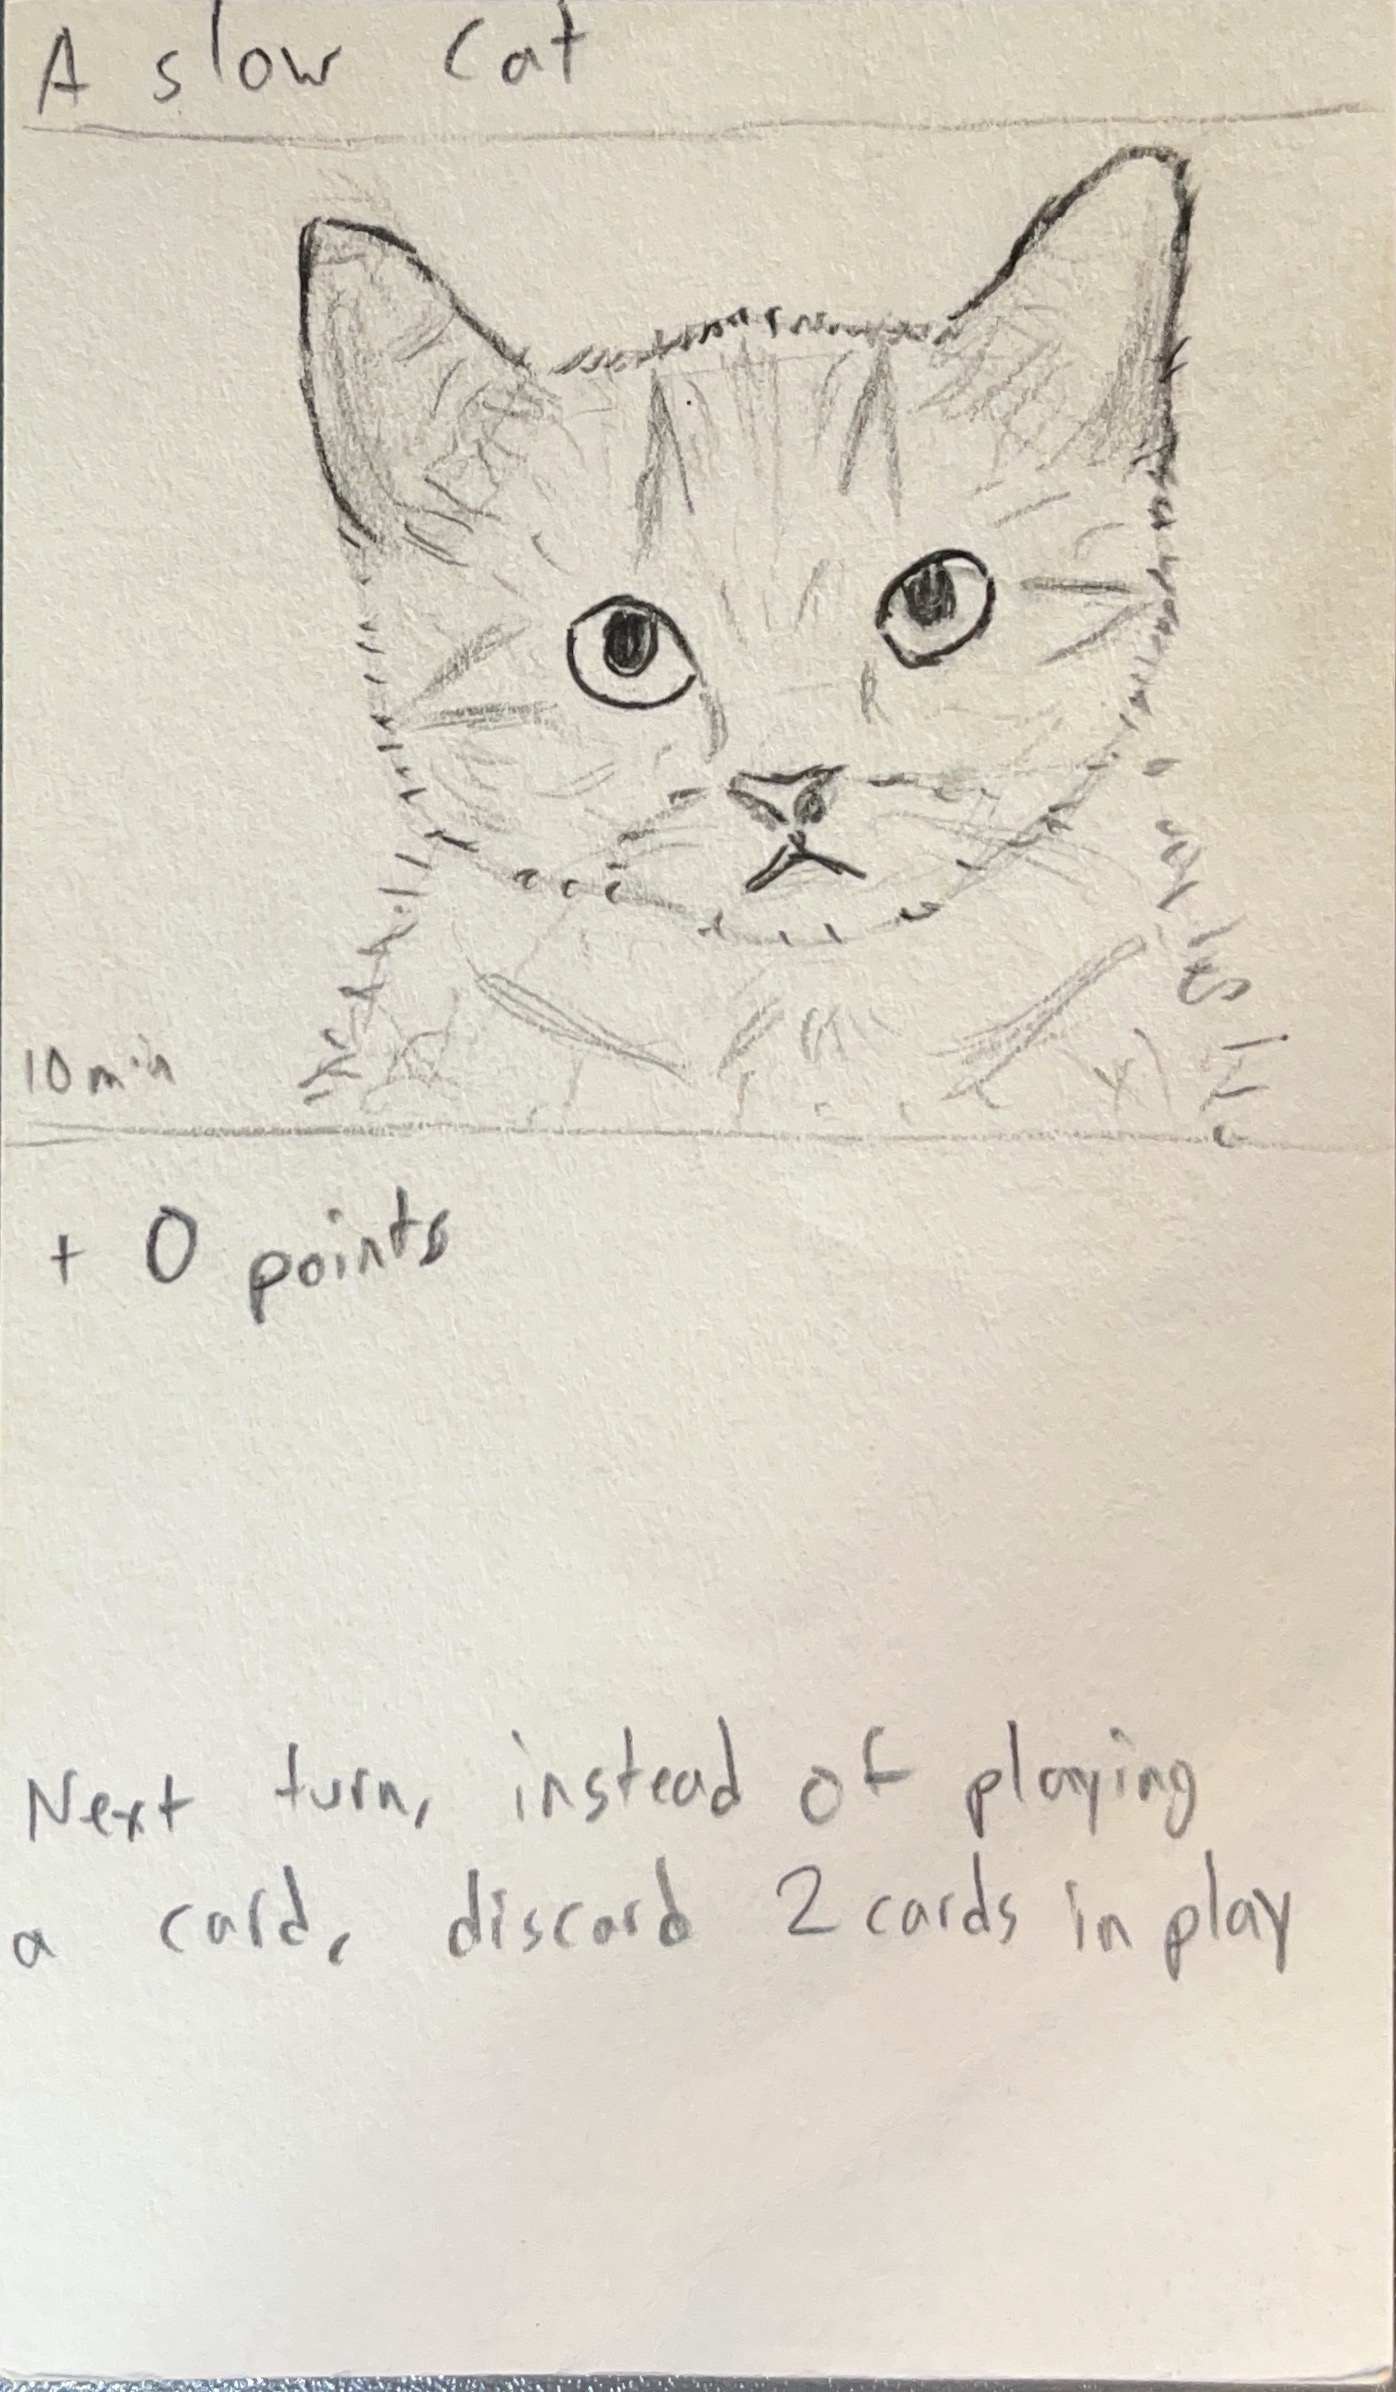 A slow cat
10 min
+ 0 points
Next turn, instead of playing
a card, discard 2 cards in play